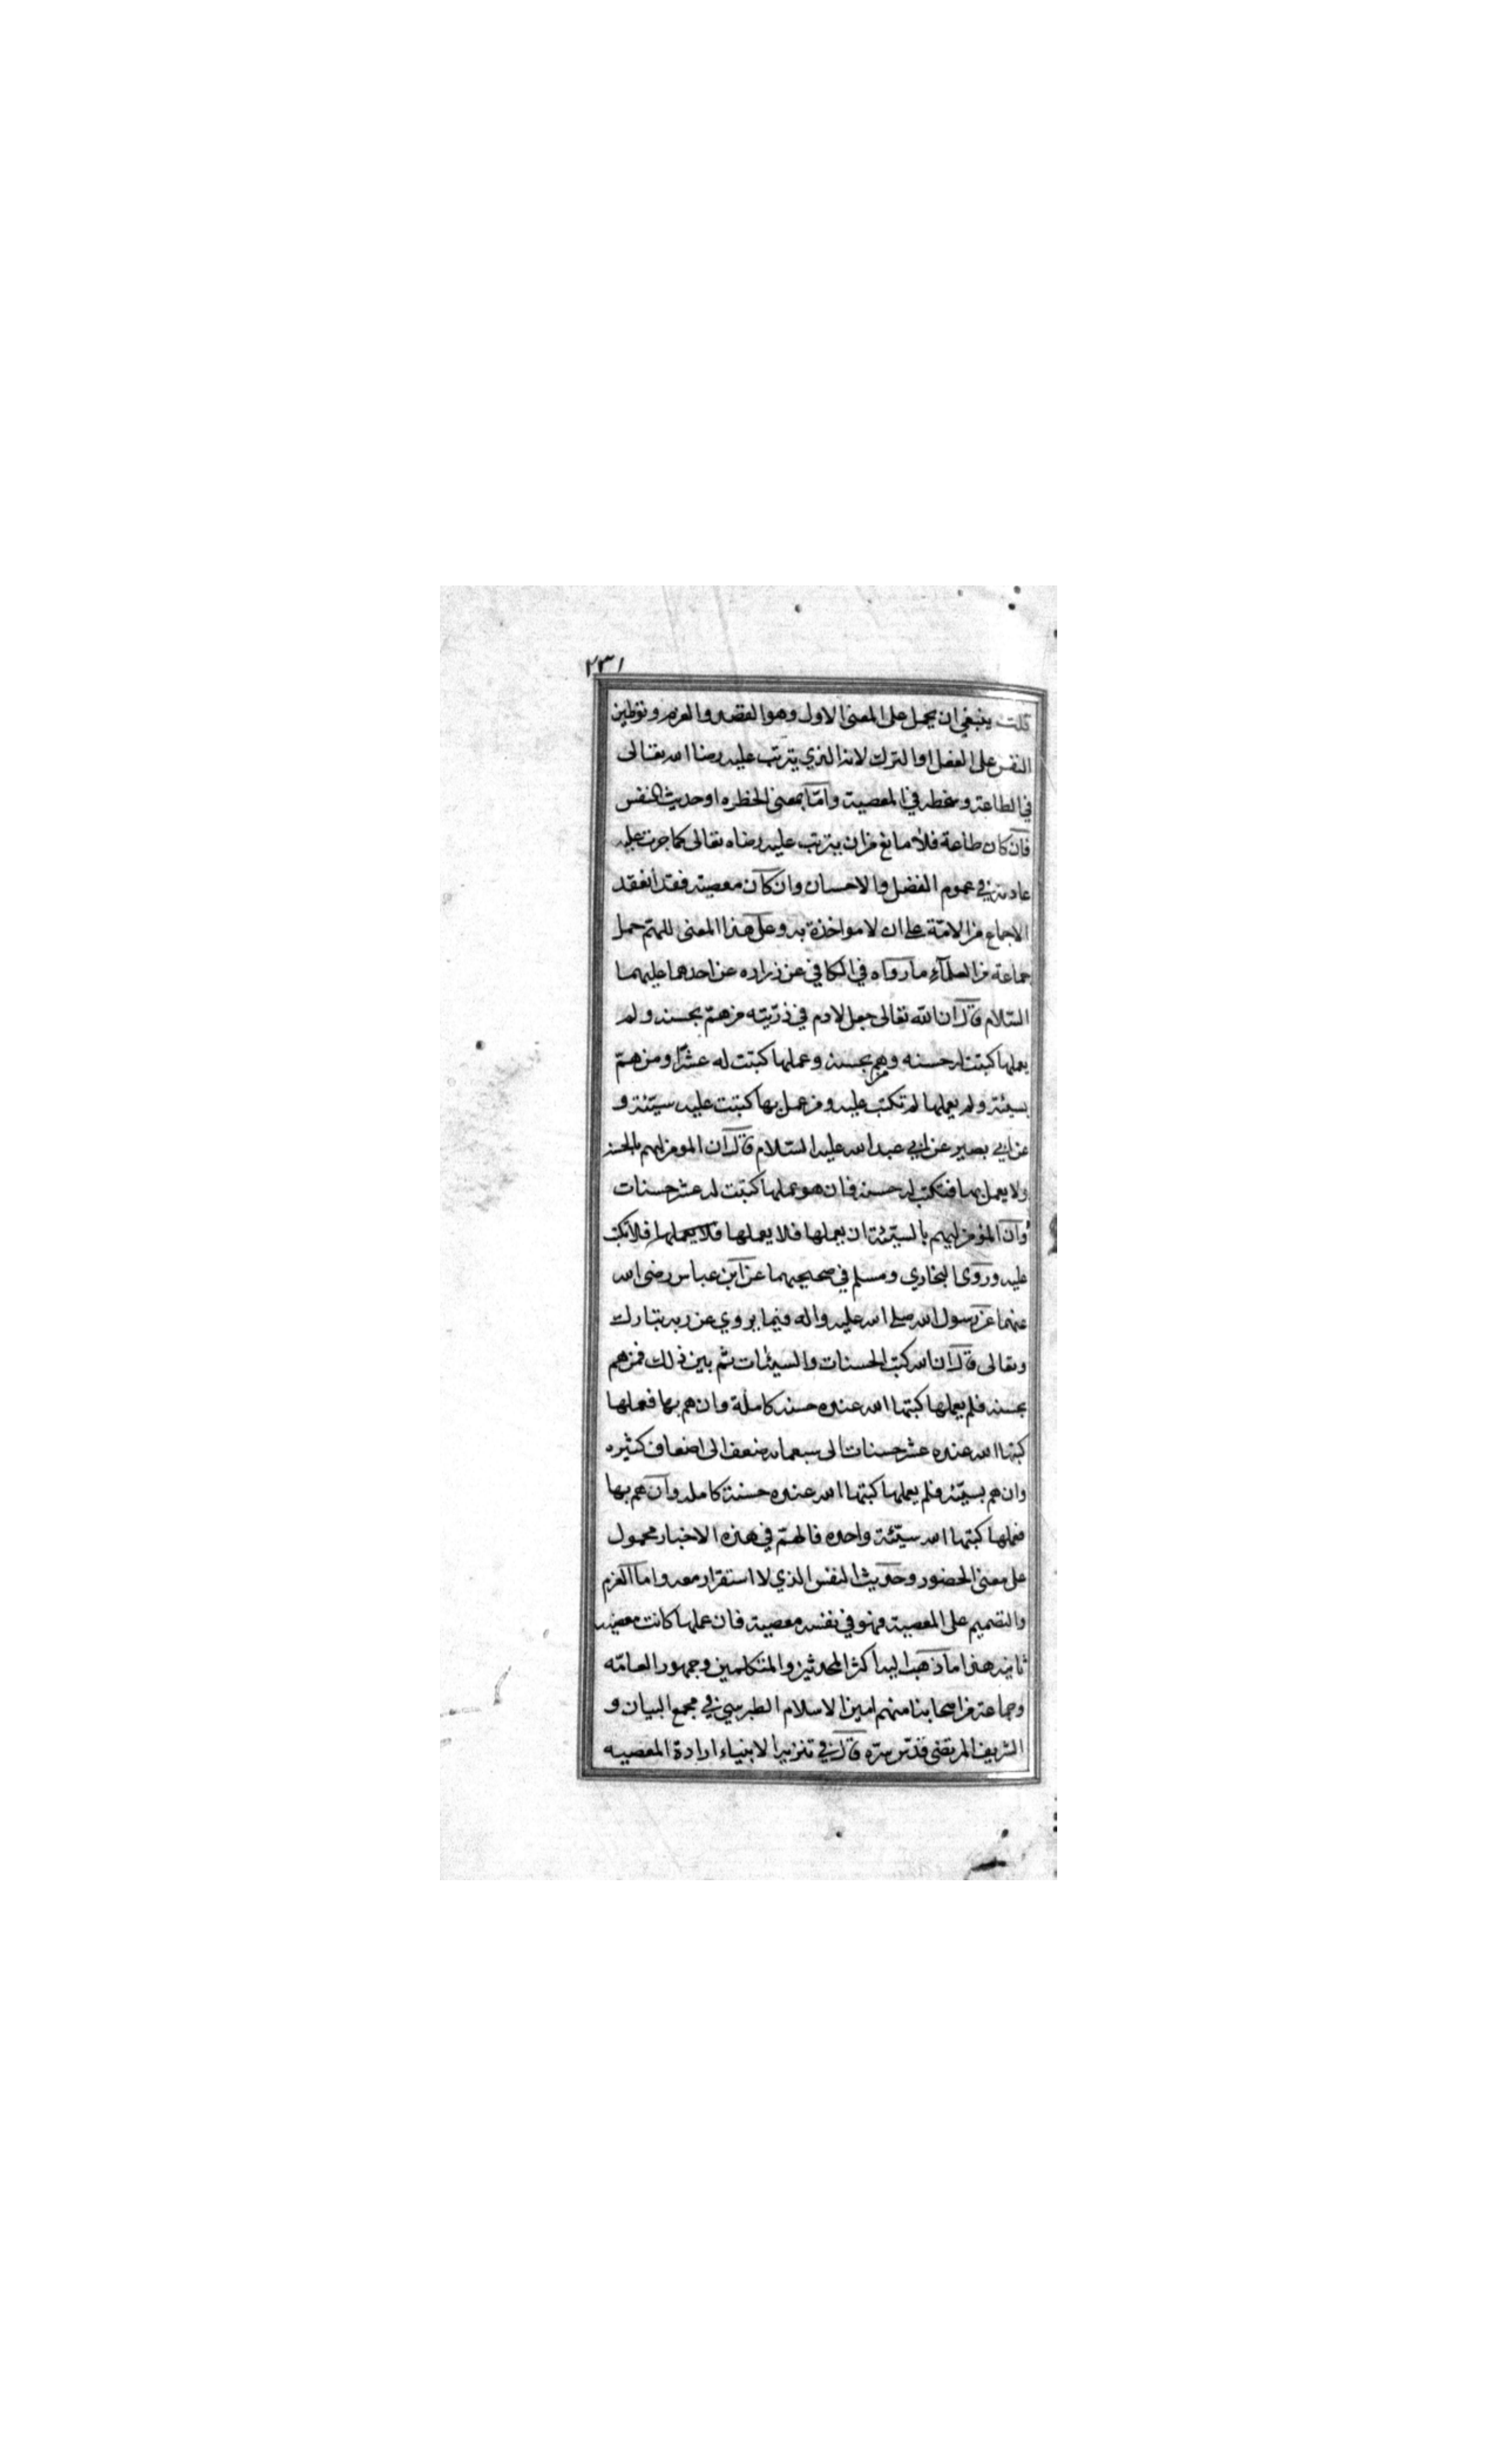 ٢٣١
قلت ينبغي ان يحمل على المعنى الاول وهو القصد والعزم وتوطين
النفس على الفعل او الترك لانه الذي يترتب عليه رضا الله تعالى
في الطاعة وسخطه في المعصية وامّا بمعنى الخطره او حديث النفس
فان كان طاعة فلا مانع من ان يترتب عليه رضاه تعالى كما جرت عليه
عادته في عموم الفضل والاحسان وان كان معصيته فقد انعقد
الاجماع من الامّة على ان لا مواخذة به وعلى هذا المعنى للهمّ حمل
جماعة من العلمآء ما رواه في الكافي عن زراره عن احدهما عليهما
السّلام قال ان الله تعالى جعل لادم في ذرّيته من همّ بحسنه ولم
يعملها كبتت له حسنه ومن هم بحسنه وعملها كبتت له عشرًا ومن همّ
بسيئة ولم يعملها لم تكتب عليه ومن عمل بها كبتت عليه سيّئة و
عن ابي بصير عن ابي عبد الله عليه السّلام قال ان المومن ليهم بالحسنه
ولا يعمل بها فتكتب له حسنه فان هو عملها كبتت له عشر حسنات
وان المؤمن ليهم بالسيّئة ان يعملها فلا يعملها فلا يعملها فلا تكتب
عليه وروى البخاري ومسلم في صحيحيهما عن ابن عباس رضى الله
عنهما عن رسول الله صلى الله عليه واله فيما يروي عن ربه تبارك
وتعالى قال ان الله كتب الحسنات والسيئات ثم بين ذلك فمن هم
بحسنه فلم يعملها كبتها الله عنده حسنه كاملة وان هم بها فعملها
كبتها الله عنده عشر حسنات الى سبعمائه ضعف الى اضعاف كثيره
وان هم بسيّئه فلم يعملها كبتها الله عنده حسنة كامله وان هم بها
فعملها كبتها الله سيّئة واحده فالهمّ في هذه الاخبار محمول
على معنى الحضور وحديث النفس الذي لا استقرار معه واما العزم
والتصميم على المعصية فهو في نفسه معصية فان عملها كانت معصيه
ثانيه هذا ما ذهب اليه اكثر المحدثين والمتكلمين وجمهور العامّه
وجماعة من اصحابنا منهم امين الاسلام الطبرسي في مجمع البيان و
الشريف المرتضى قدّس سرّه قال في تنزيه الانبياء ارادة المعصيه